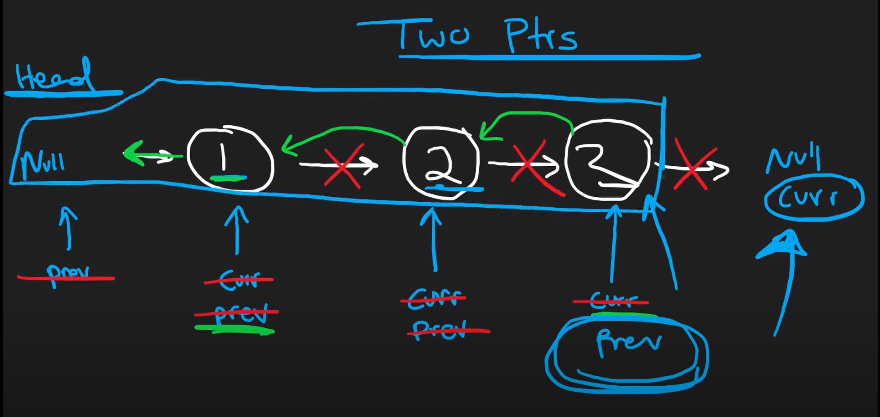 Two Ptrs
Head
Null 1 2 3 Null
Curr
prev
Curr
prev
Curr
Prev
Curr
Prev